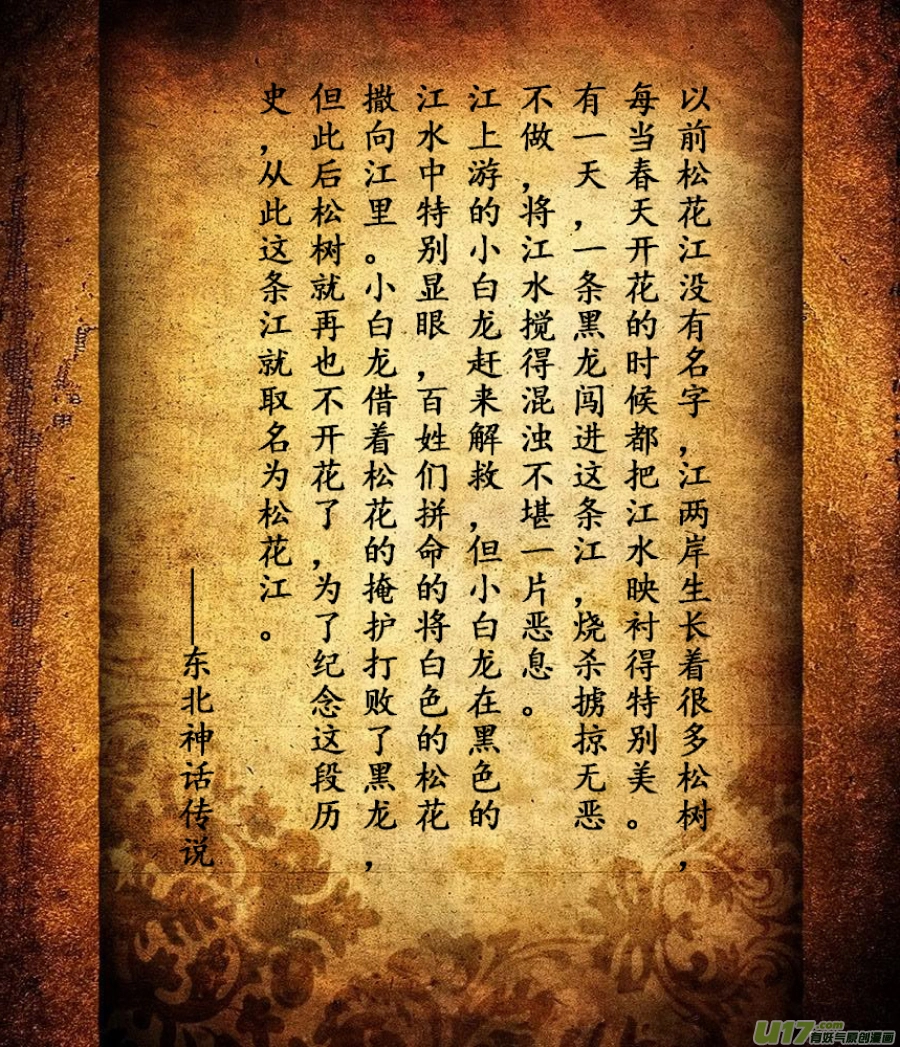 以前松花江没有名字，江两岸生长着很多松树，
每当春天开花的时候都把江水映衬得特别美。
有一天，一条黑龙闯进这条江，烧杀掳掠无恶
不做，将江水搅得混浊不堪一片恶息。
江上游的小白龙赶来解救，但小白龙在黑色的
江水中特别显眼，百姓们拼命的将白色的松花
撒向江里。小白龙借着松花的掩护打败了黑龙，
但此后松树就再也不开花了，为了纪念这段历
史，从此这条江就取名为松花江。
——东北神话传说
U17.com
有妖气原创漫画